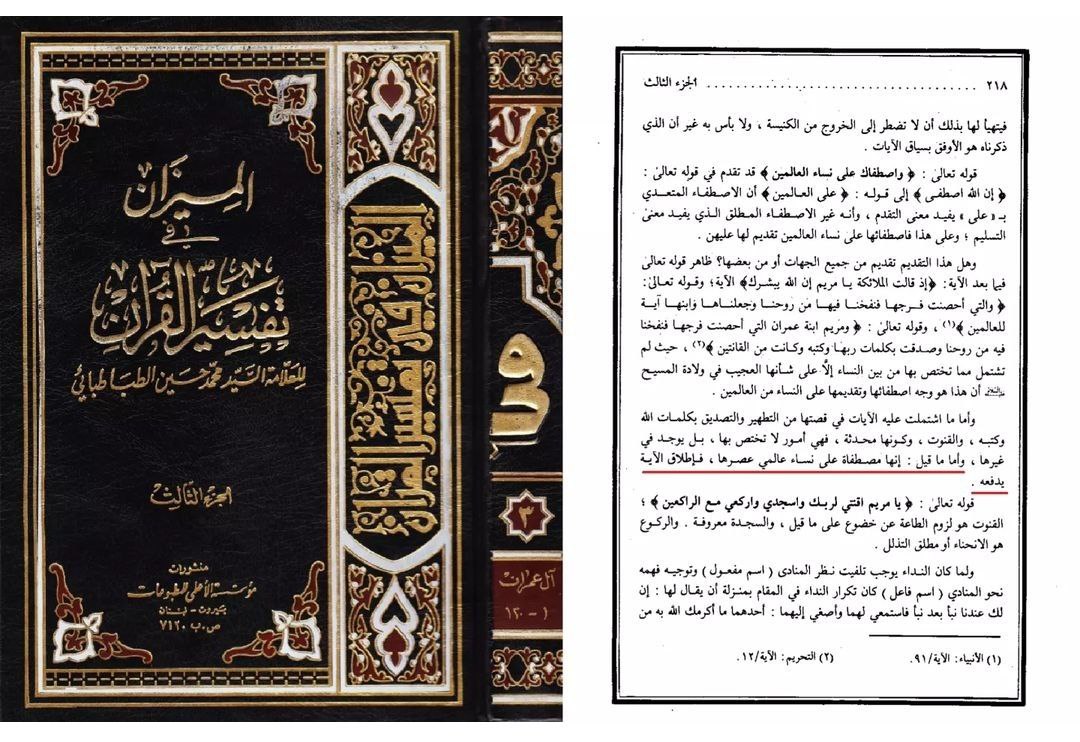 الميزان
في
تفسير القرآن
للعلامة السيد محمد حسين الطباطبائي
الجزء الثالث
منشورات
مؤسسة الأعلمي للمطبوعات
بيروت - لبنان
ص.ب ٧١٢٠
الميزان في تفسير القرآن
في
٣
آل عمران
١ - ١٢٠
٢١٨ الجزء الثالث
فيتهيأ لها بذلك أن لا تضطر إلى الخروج من الكنيسة ، ولا بأس به غير أن الذي
ذكرناه هو الأوفق بسياق الآيات .
قوله تعالىٰ : ﴿ واصطفاك على نساء العالمين ﴾ قد تقدم في قوله تعالىٰ :
﴿ إن الله اصطفـى ﴾ إلى قـولـه : ﴿ على العـالميـن ﴾ أن الاصـطفـاء المتعـدي
بـ « على » يفيـد معنى التقـدم ، وأنـه غيـر الاصـطفـاء المطلق الـذي يفيـد معنىٰ
التسليم ؛ وعلى هذا فاصطفائها علىٰ نساء العالمين تقديم لها عليهن .
وهل هذا التقديم تقديم من جميع الجهات أو من بعضها؟ ظاهر قوله تعالىٰ
فيما بعد الآية: ﴿إذ قالت الملائكة يا مريم إن الله يبشرك﴾ الآية؛ وقوله تعالىٰ:
﴿ والتي أحصنت فـرجها فنفخنـا فيهـا من روحنـا وجعلنـاهـا وابنهـا آيـة
للعالمين ﴾(١) ، وقوله تعالىٰ : ﴿ ومريم ابنة عمران التي أحصنت فرجها فنفخنا
فيه من روحنا وصدقت بكلمات ربها وكتبه وكانت من القانتين ﴾(٢) ، حيث لم
تشتمل مما تختص بها من بين النساء إلاَّ على شأنها العجيب في ولادة المسيح
أن هذا هو وجه اصطفائها وتقديمها على النساء من العالمين .
وأما ما اشتملت عليه الآيات في قصتها من التطهير والتصديق بكلمات الله
وكتبـه ، والقنوت ، وكـونها محـدثة ، فهي أمـور لا تختص بها ، بـل يوجـد في
غيرها ، وأما ما قيل : إنها مصـطفاة على نسـاء عالمي عصـرها ، فـإطلاق الآيـة
يدفعه .
قوله تعالىٰ : ﴿ يا مريم اقنتي لربـك واسجدي واركعي مـع الراكعين ﴾ ؛
القنوت هو لزوم الطاعة عن خضوع على ما قيل ، والسجدة معروفة . والركوع
هو الانحناء أو مطلق التذلل .
ولما كان النـداء يوجب تلفيت نـظر المنادى ( اسم مفعـول ) وتوجيـه فهمه
نحو المنادي ( اسم فاعل ) كان تكرار النداء في المقام بمنزلة أن يقال لها : إن
لك عندنا نبأ بعد نبأ فاستمعي لهما وأصغي إليهما : أحدهما ما أكرمك الله به من
(١) الأنبياء: الآية/٩١. (٢) التحريم: الآية/١٢.